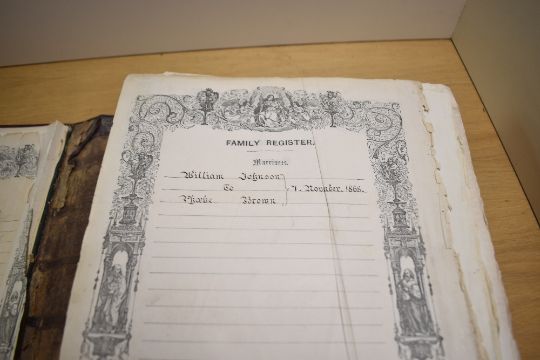 FAMILY REGISTER.
Marriages.
William Johnson
To
7. November. 1868.
Phœbe Brown